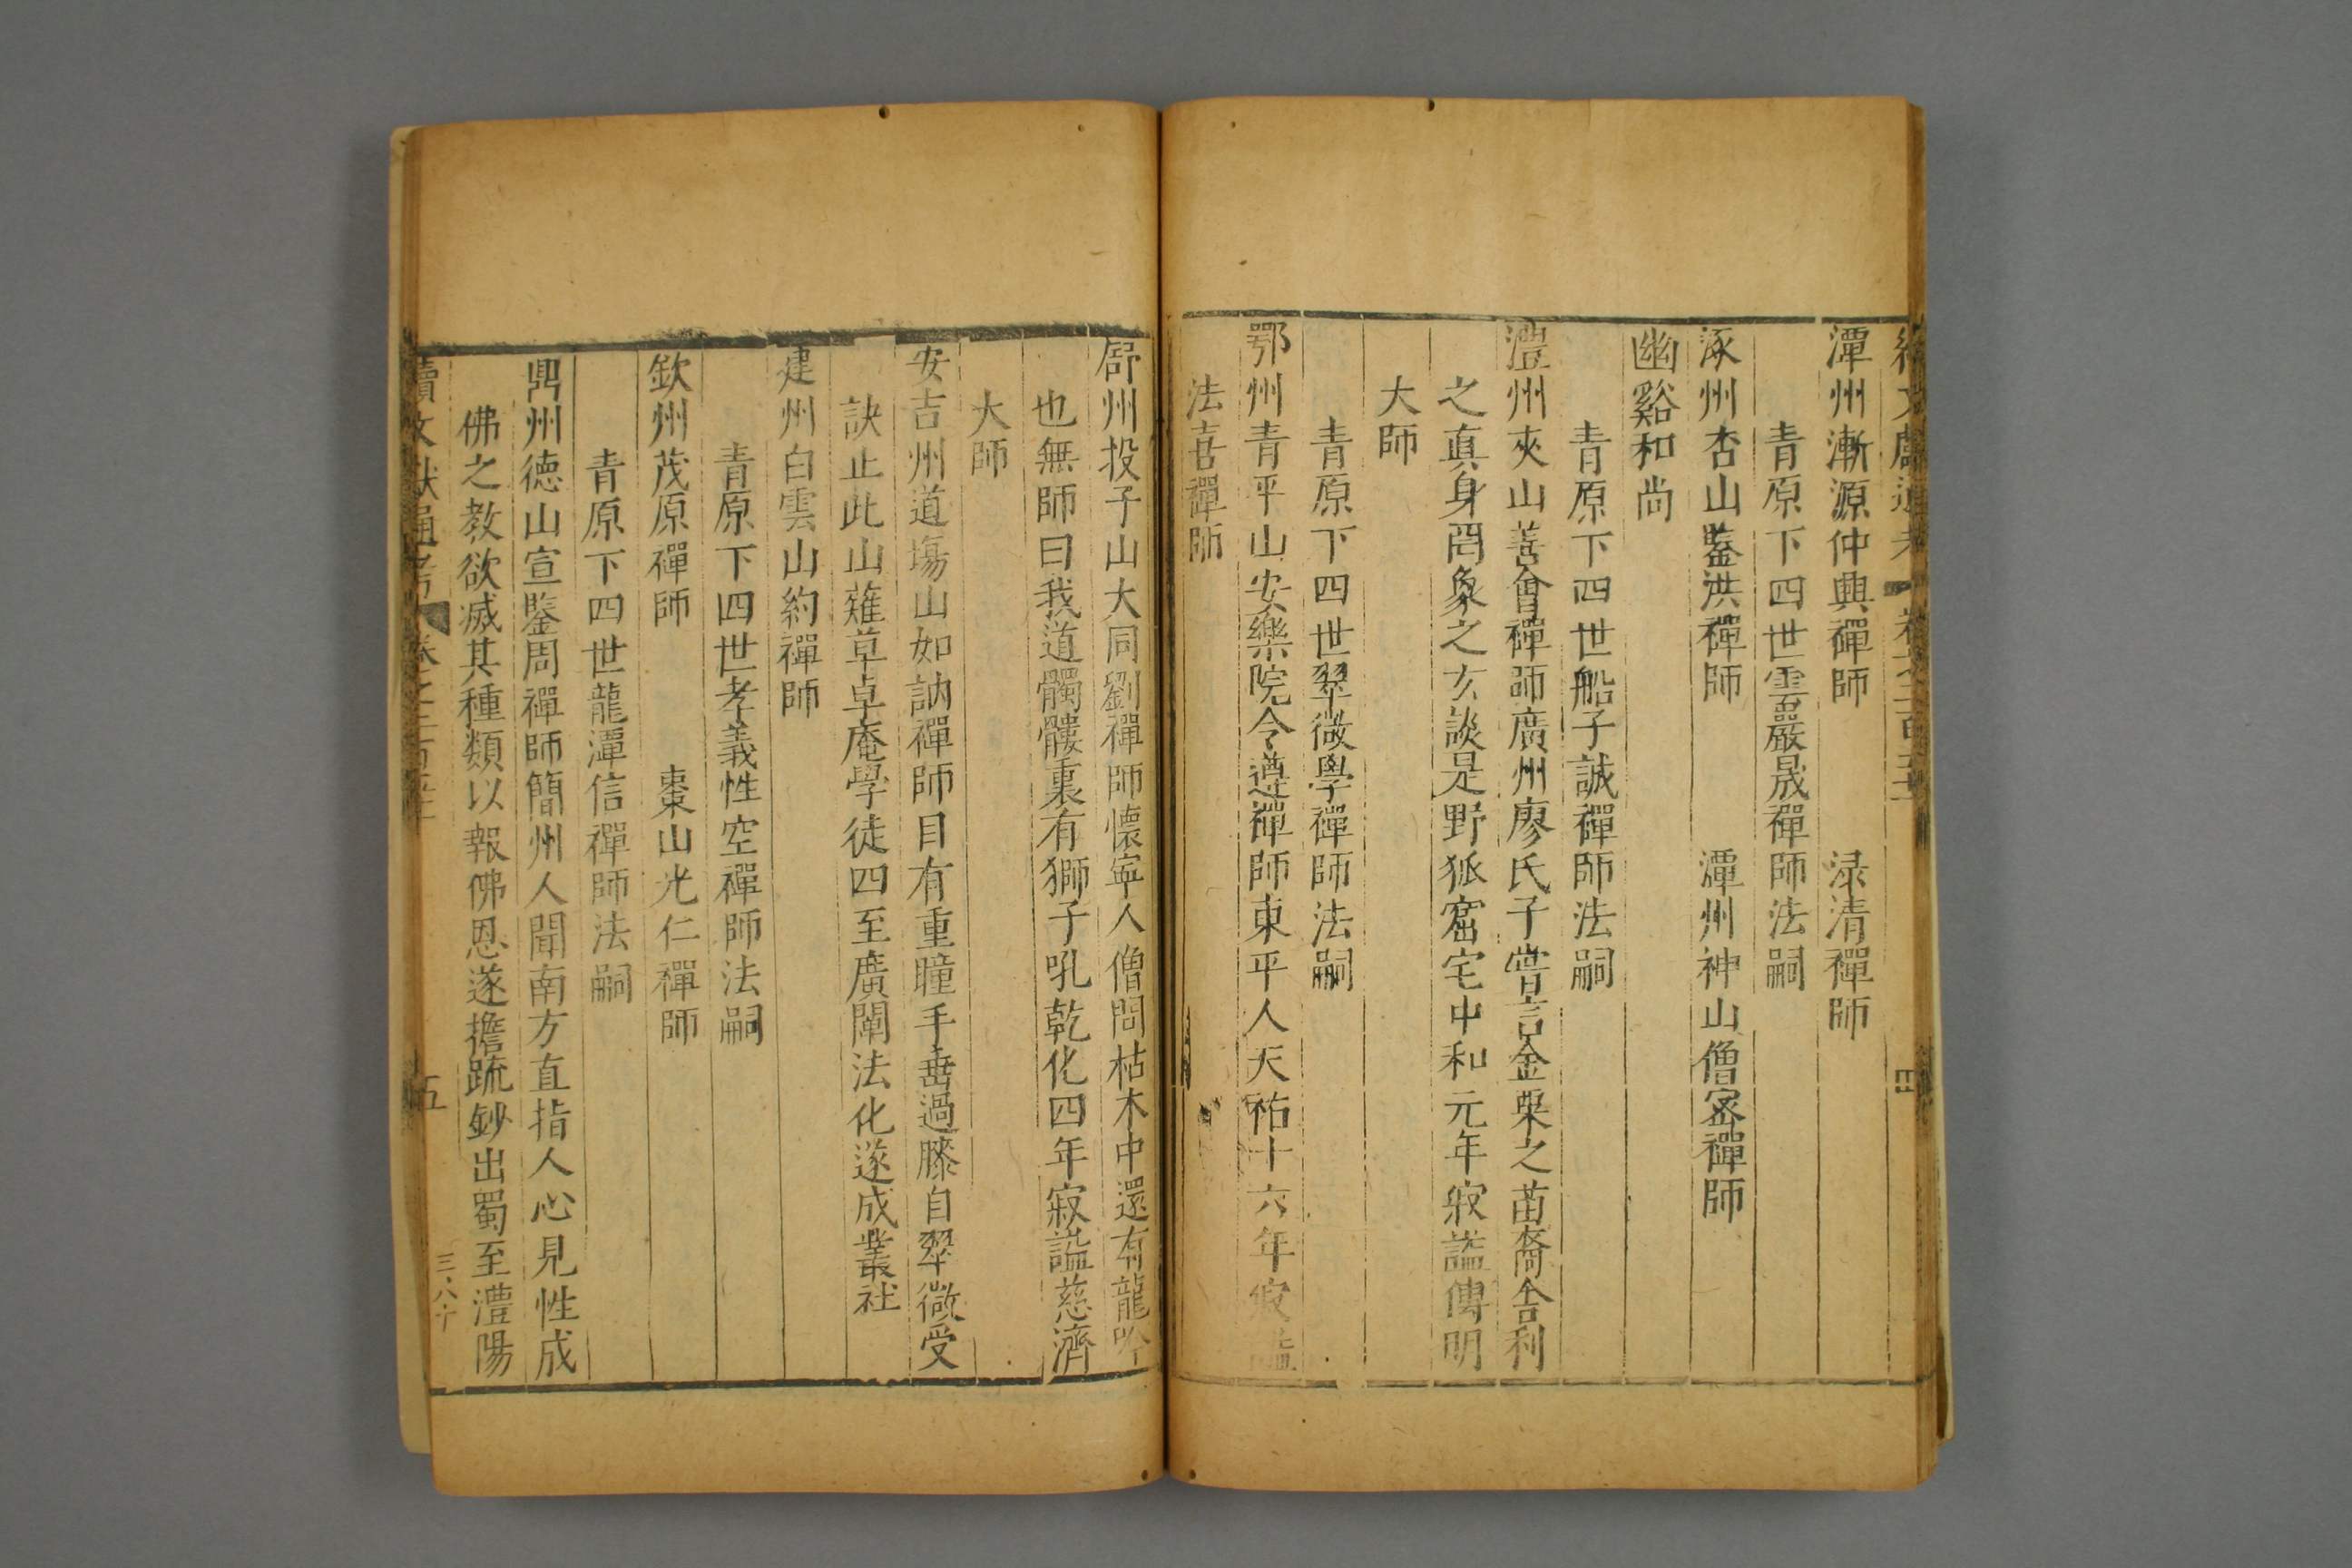 續文獻通考 卷之二百五十 四
潭州漸源仲興禪師 渌清禪師
青原下四世雲巖晟禪師法嗣
涿州杏山鑒洪禪師 潭州神山僧密禪師
幽谿和尚
青原下四世船子誠禪師法嗣
澧州夾山善會禪師廣州廖氏子嘗言金粟之苗裔舍利
之真身罔象之玄談是野狐窟宅中和元年寂謚傳明
大師
青原下四世翠微學禪師法嗣
鄂州青平山安樂院令遵禪師東平人天祐十六年寂謚
法喜禪師
舒州投子山大同劉禪師懷寧人僧問枯木中還有龍吟
也無師曰我道髑髏裏有獅子吼乾化四年寂謚慈濟
大師
安吉州道塲山如訥禪師目有重瞳手垂過膝自翠微受
訣止此山薙草卓庵學徒四至廣闡法化遂成叢社
建州白雲山約禪師
青原下四世孝義性空禪師法嗣
欽州茂原禪師 棗山光仁禪師
青原下四世龍潭信禪師法嗣
鼎州德山宣鑒周禪師簡州人聞南方直指人心見性成
佛之教欲滅其種類以報佛恩遂擔疏鈔出蜀至澧陽
續文獻通考 卷之二百五十 五